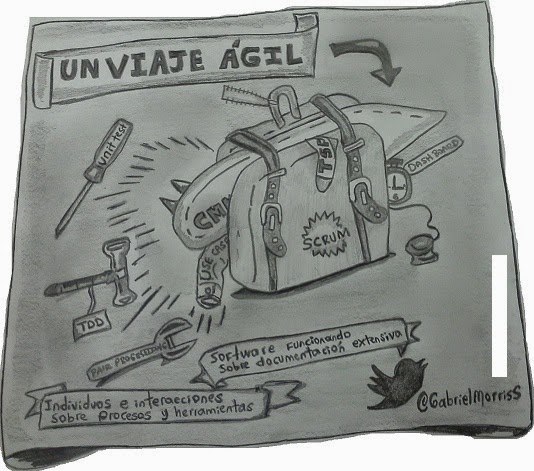 UN VIAJE ÁGIL
Unit test
TSP
DASHBOARD
SCRUM
USE CASE
TDD
Software funcionando
sobre documentación extensiva
Individuos e interacciones
sobre procesos y herramientas
@GabrielMorrisS